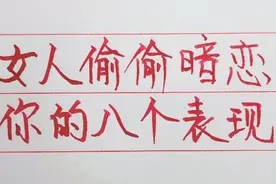 女人偷偷暗恋
你的八个表现